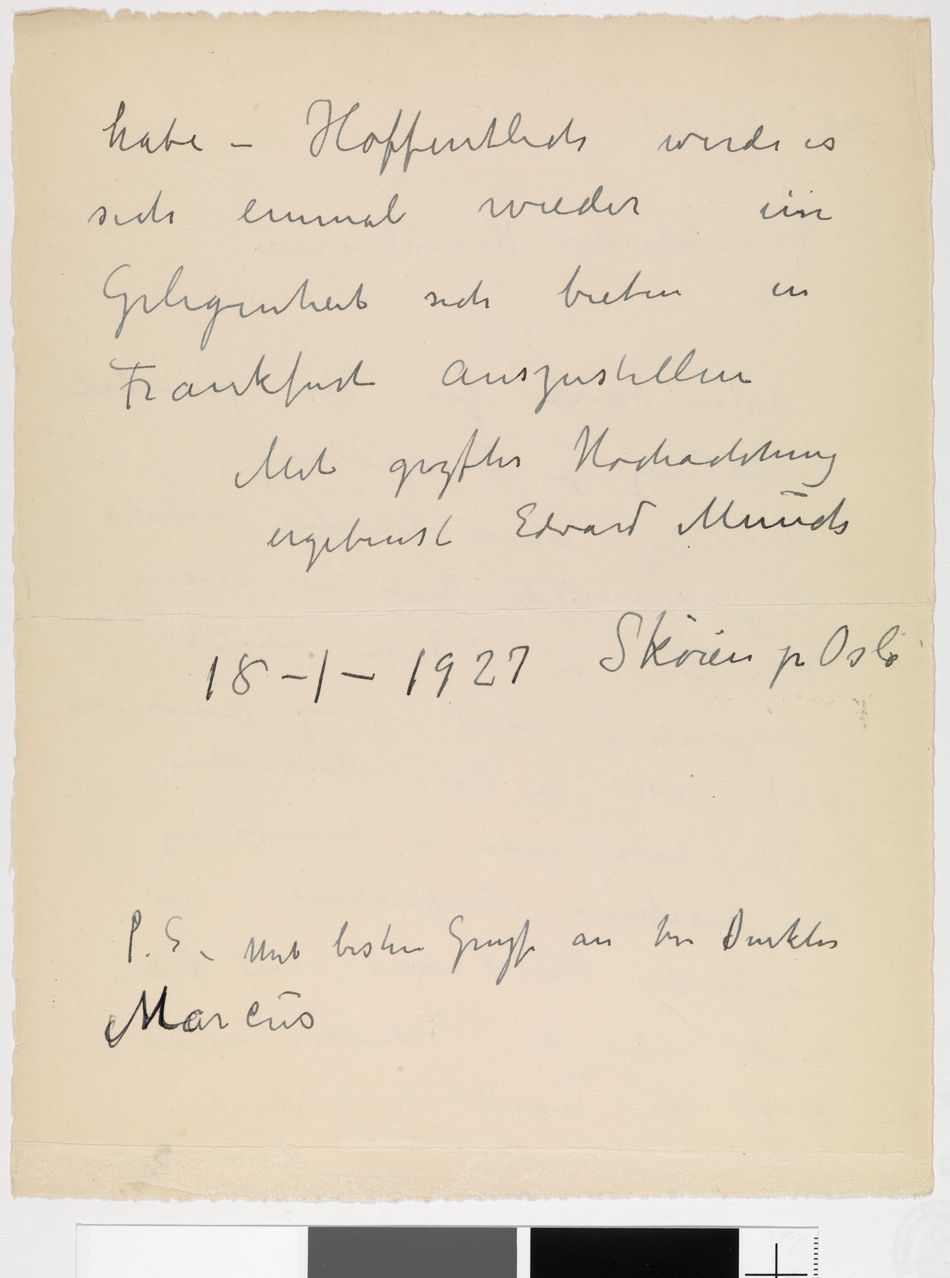 habe – Hoffentlich werde es
sich einmal wieder ein
Gelegenheit sich bieten in
Frankfurt auszustellen
Mit großter Hochachtung
ergebenst Edvard Munch
18–1–1927 Skøien pr Oslo
P.S. Mit besten Gruße an her Direktor
Marcus